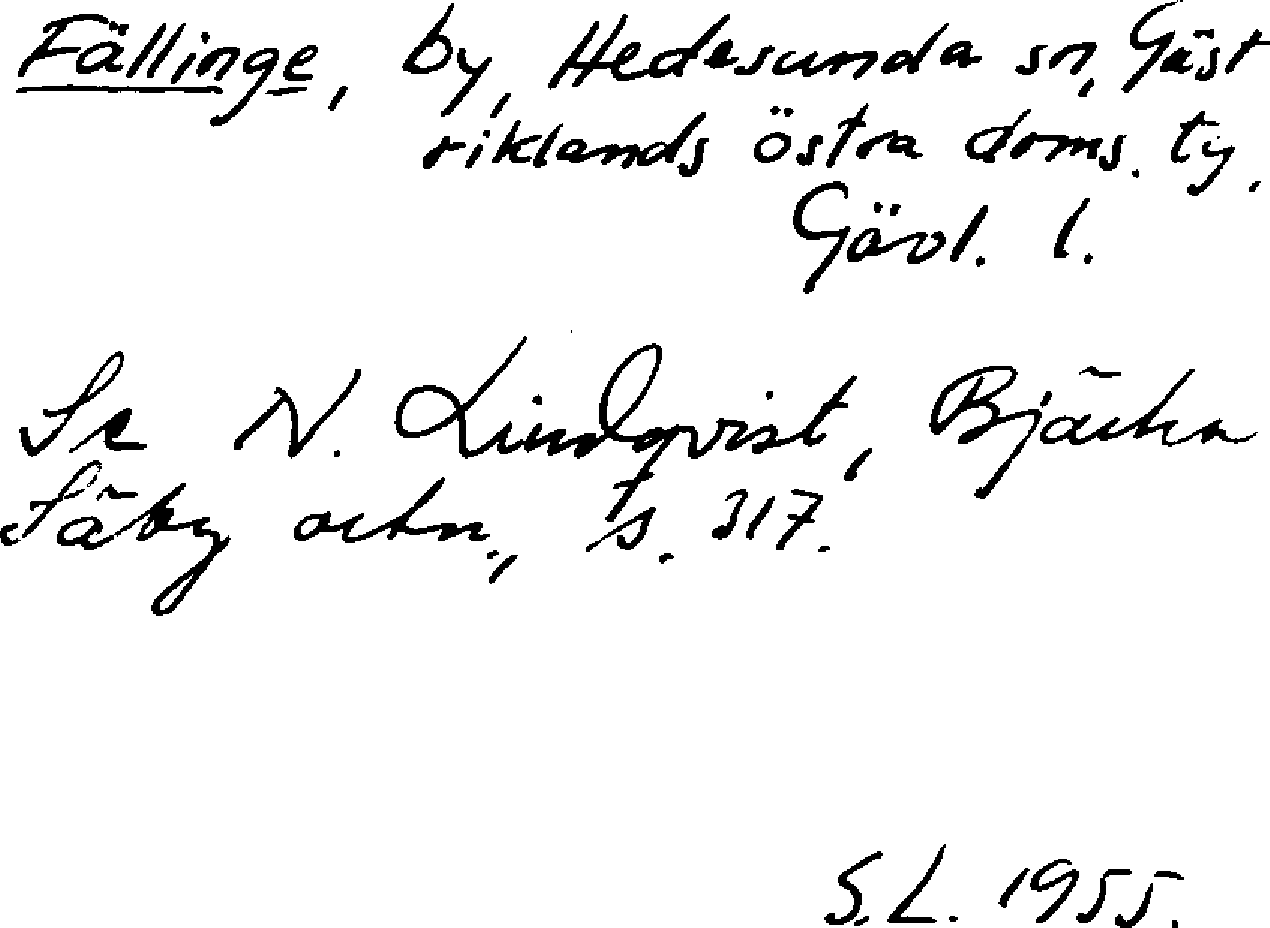 Fällinge, by, Hedesunda sn, Gäst
riklands östra doms. ty,
Gävl. l.
Se N. Lindqvist, Bjärka
Säby ortn., s. 317.
S.L. 1955.